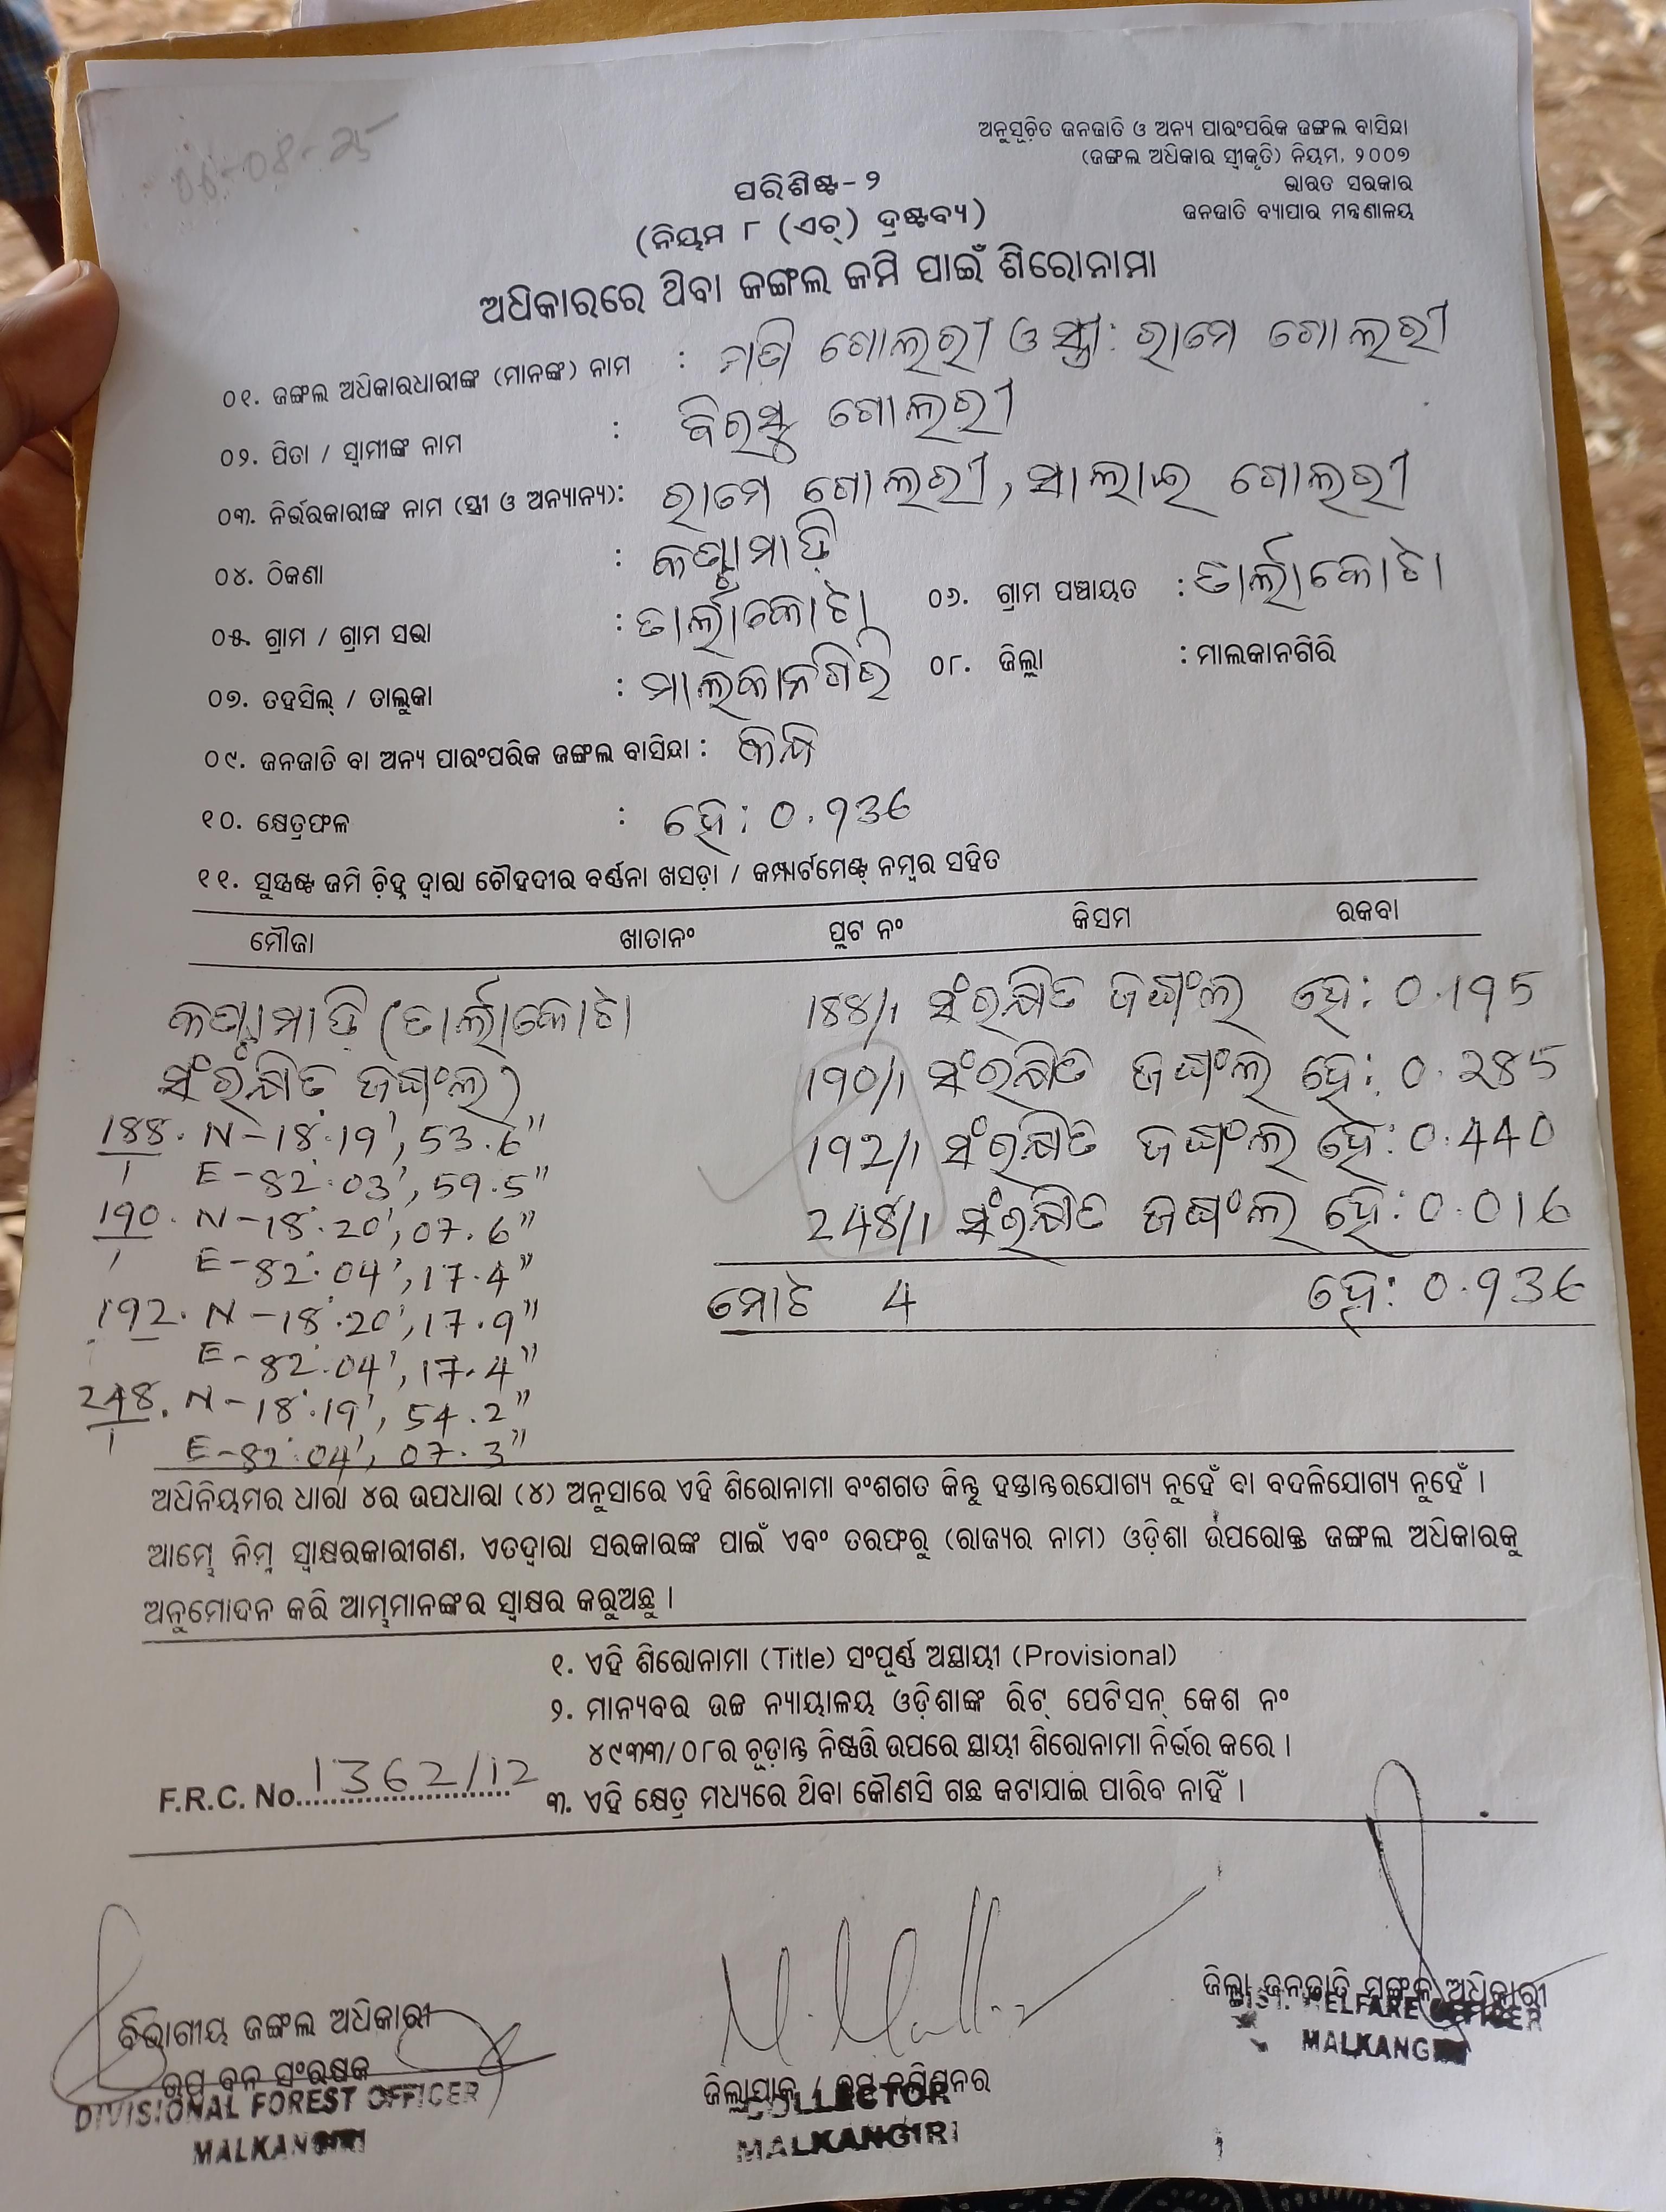 06-08-25
ଅନୁସୂଚିତ ଜନଜାତି ଓ ଅନ୍ୟ ପାରଂପରିକ ଜଙ୍ଗଲ ବାସିନ୍ଦା
(ଜଙ୍ଗଲ ଅଧିକାର ସ୍ୱୀକୃତି) ନିୟମ, ୨୦୦୭
ଭାରତ ସରକାର
ଜନଜାତି ବ୍ୟାପାର ମନ୍ତ୍ରଣାଳୟ
ପରିଶିଷ୍ଟ- ୨
(ନିୟମ ୮ (ଏଚ୍) ଦ୍ରଷ୍ଟବ୍ୟ)
ଅଧିକାରରେ ଥିବା ଜଙ୍ଗଲ ଜମି ପାଇଁ ଶିରୋନାମା
୦୧. ଜଙ୍ଗଲ ଅଧିକାରଧାରୀଙ୍କ (ମାନଙ୍କ) ନାମ : ଗୋଲରୀ ଓ ସ୍ତ୍ରୀ: ରାମେ ଗୋଲରୀ
୦୨. ପିତା / ସ୍ୱାମୀଙ୍କ ନାମ : ଗୋଲରୀ
୦୩. ନିର୍ଭରକାରୀଙ୍କ ନାମ (ସ୍ତ୍ରୀ ଓ ଅନ୍ୟାନ୍ୟ): ରାମେ ଗୋଲରୀ, ସାଲାଇ ଗୋଲରୀ
୦୪. ଠିକଣା :
୦୫. ଗ୍ରାମ / ଗ୍ରାମ ସଭା : ତାର୍ଲାକୋଟା ୦୬. ଗ୍ରାମ ପଞ୍ଚାୟତ : ତାର୍ଲାକୋଟା
୦୭. ତହସିଲ୍ / ତାଲୁକା : ମାଲକାନଗିରି ୦୮. ଜିଲ୍ଲା : ମାଲକାନଗିରି
୦୯. ଜନଜାତି ବା ଅନ୍ୟ ପାରଂପରିକ ଜଙ୍ଗଲ ବାସିନ୍ଦା :
୧୦. କ୍ଷେତ୍ରଫଳ : ହେ: 0.936
୧୧. ସୁସ୍ପଷ୍ଟ ଜମି ଚିହ୍ନ ଦ୍ୱାରା ଚୌହଦୀର ବର୍ଣ୍ଣନା ଖସଡ଼ା / କମ୍ପାର୍ଟମେଣ୍ଟ୍ ନମ୍ବର ସହିତ
ମୌଜା ଖାତାନଂ ପ୍ଲଟ ନଂ କିସମ ରକବା
(ତାର୍ଲାକୋଟା
ସଂରକ୍ଷିତ ଜଙ୍ଗଲ)
188/1 ସଂରକ୍ଷିତ ଜଙ୍ଗଲ ହେ: 0.195
190/1 ସଂରକ୍ଷିତ ଜଙ୍ଗଲ ହେ: 0.285
192/1 ସଂରକ୍ଷିତ ଜଙ୍ଗଲ ହେ: 0.440
248/1 ସଂରକ୍ଷିତ ଜଙ୍ଗଲ ହେ: 0.016
ମୋଟ 4 ହେ: 0.936
188/1. N-18°.19', 53.6"
E-82°.03', 59.5"
190/1. N-18°.20', 07.6"
E-82°.04', 17.4"
192. N-18°.20', 17.9"
E-82°.04', 17.4"
248/1. N-18°.19', 54.2"
E-82°.04', 07.3"
ଅଧିନିୟମର ଧାରା ୪ର ଉପଧାରା (୪) ଅନୁସାରେ ଏହି ଶିରୋନାମା ବଂଶଗତ କିନ୍ତୁ ହସ୍ତାନ୍ତରଯୋଗ୍ୟ ନୁହେଁ ବା ବଦଳିଯୋଗ୍ୟ ନୁହେଁ ।
ଆମ୍ଭେ ନିମ୍ନ ସ୍ୱାକ୍ଷରକାରୀଗଣ, ଏତଦ୍ୱାରା ସରକାରଙ୍କ ପାଇଁ ଏବଂ ତରଫରୁ (ରାଜ୍ୟର ନାମ) ଓଡ଼ିଶା ଉପରୋକ୍ତ ଜଙ୍ଗଲ ଅଧିକାରକୁ
ଅନୁମୋଦନ କରି ଆମ୍ଭମାନଙ୍କର ସ୍ୱାକ୍ଷର କରୁଅଛୁ ।
୧. ଏହି ଶିରୋନାମା (Title) ସଂପୂର୍ଣ୍ଣ ଅସ୍ଥାୟୀ (Provisional)
୨. ମାନ୍ୟବର ଉଚ୍ଚ ନ୍ୟାୟାଳୟ ଓଡ଼ିଶାଙ୍କ ରିଟ୍ ପେଟିସନ୍ କେଶ ନଂ
୪୯୩୩/୦୮ର ଚୂଡ଼ାନ୍ତ ନିଷ୍ପତ୍ତି ଉପରେ ସ୍ଥାୟୀ ଶିରୋନାମା ନିର୍ଭର କରେ ।
F.R.C. No. 1362/12
୩. ଏହି କ୍ଷେତ୍ର ମଧ୍ୟରେ ଥିବା କୌଣସି ଗଛ କଟାଯାଇ ପାରିବ ନାହିଁ ।
ବିଭାଗୀୟ ଜଙ୍ଗଲ ଅଧିକାରୀ
ଉପ ବନ ସଂରକ୍ଷକ
DIVISIONAL FOREST OFFICER
MALKANGIRI
ଜିଲ୍ଲାପାଳ / ଉପ କମିଶନର
COLLECTOR
MALKANGIRI
ଜିଲ୍ଲା ଜନଜାତି ମଙ୍ଗଳ ଅଧିକାରୀ
DIST. WELFARE OFFICER
MALKANGIRI